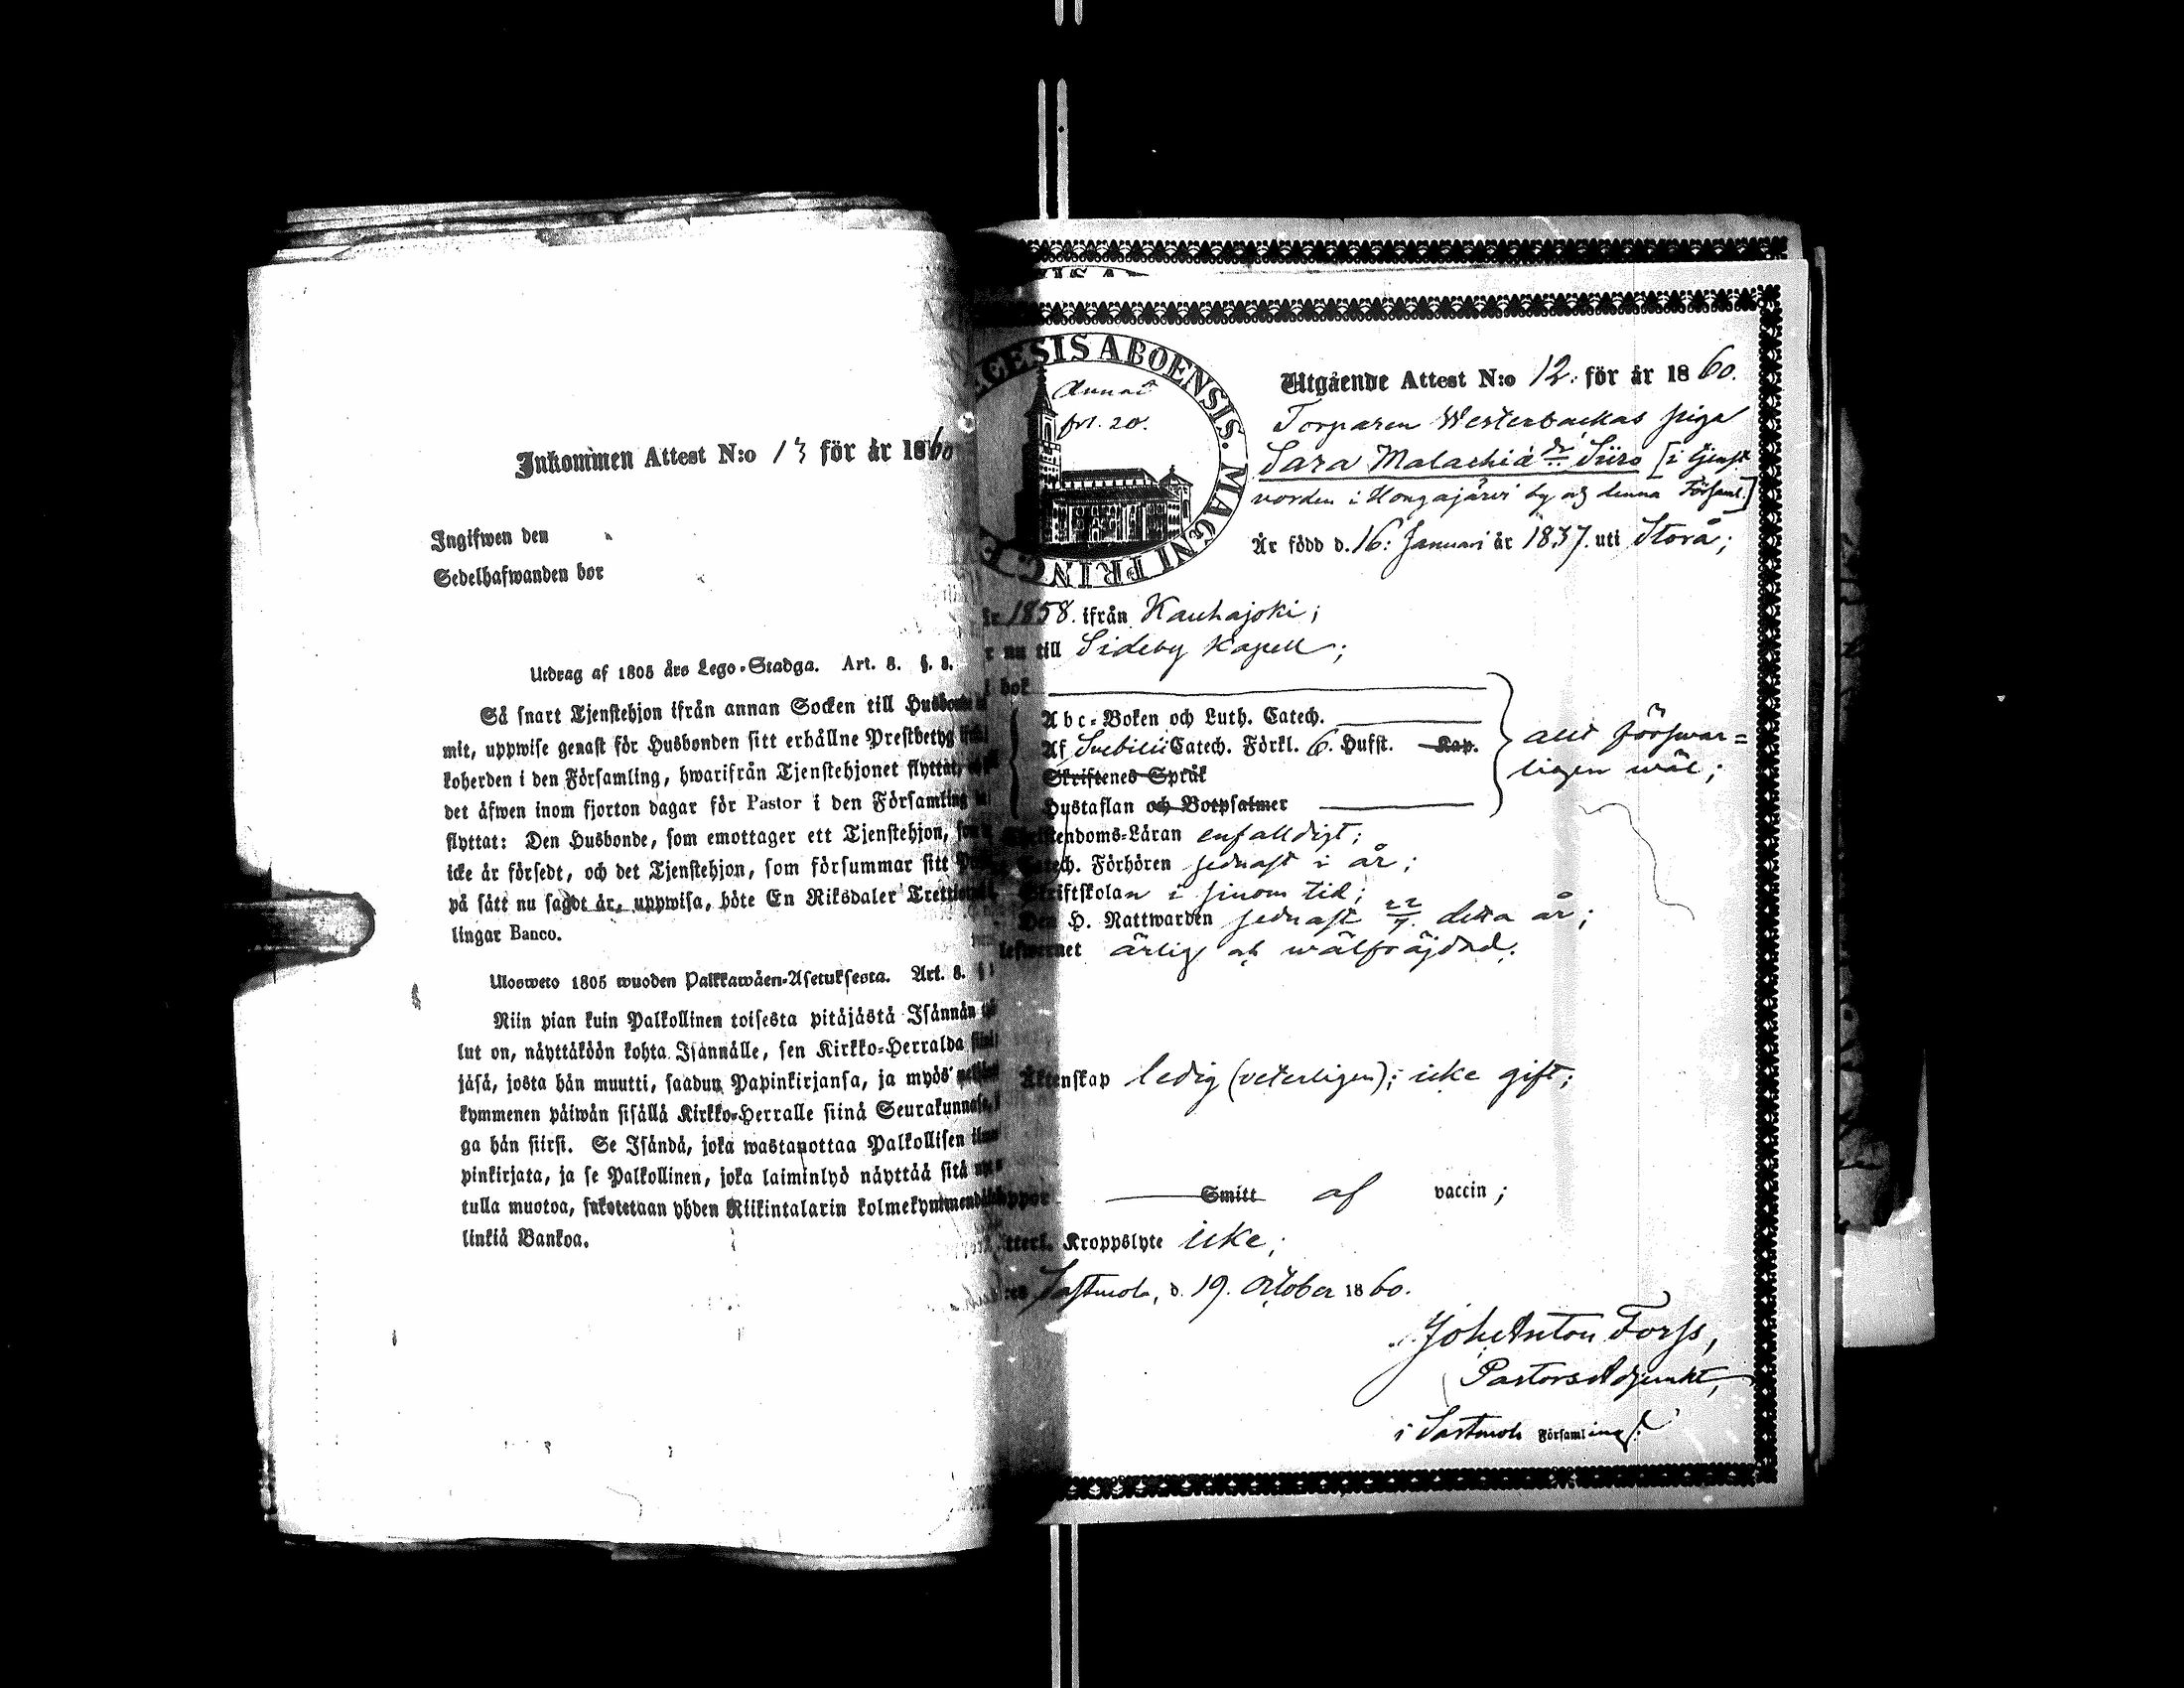 Inkommen Attest N:o 13 för år 1860
Ingifwen den
Sedelhafwanden bor
Utdrag af 1805 års Lego-Stadga. Art. 8. §. 8.
Så snart Tjenstehjon ifrån annan Socken till Husbonde
mit, uppwise genast för Husbonden sitt erhållne Prestbetyg
koherden i den Församling, hwarifrån Tjenstehjonet flyttat,
det äfwen inom fjorton dagar för Pastor i den Församling
flyttat: Den Husbonde, som emottager ett Tjenstehjon,
icke är försedt, och det Tjenstehjon, som försummar sitt
på sätt nu sagdt är, uppwisa, böte En Riksdaler
lingar Banco.
Ulosweto 1805 wuoden Palkkawäen-Asetuksesta. Art. 8. §
Niin pian kuin Palkollinen toisesta pitäjästä Isännän
lut on, näyttäköön kohta Isännälle, sen Kirkko-Herralda
jäsä, josta hän muutti, saadun Papinkirjansa, ja myös
kymmenen päiwän sisällä Kirkko-Herralle siinä Seurakunnasa,
ga hän siirsi. Se Isändä, joka wastanottaa Palkollisen
pinkirjata, ja se Palkollinen, joka laiminlyö näyttää sitä
tulla muotoa, sakotetaan yhden Riikintalarin kolmekymmendä
linkiä Bankoa.
CESIS ABOENSIS. MAGNI PRINC
frl. 20.
Utgående Attest N:o 12. för år 1860.
Torparen Westerbackas piga
Sara Malachiä dr Siiro [i tjenst
vorden i Hongajärvi by af denna Förssaml.]
Är född d. 16: Januari år 1837. uti Storå;
år 1858. ifrån Kauhajoki;
nu till Sideby Kapell;
i bok
Abc-Boken och Luth. Catech.
Af Svebilii Catech. Förkl. 6. Hufst. Kap.
Skriftenes Språk
Hustaflan och Botpsalmer
allt förswar=
ligen wäl;
Christendoms-Läran enfalldigt;
Catech. Förhören sednast i år;
Skriftskolan i sinom tid;
Den H. Nattwarden sednast 22/7. detta år;
lefwernet ärlig och wälfräjdad.
Äktenskap ledig (veterligen); icke gift;
koppor Smitt af vaccin;
tterl. Kroppslyte icke;
Sastmola, d. 19. October 1860.
Joh. Anton Forss,
Pastors Adjunkt,
i Sastmola Församling.